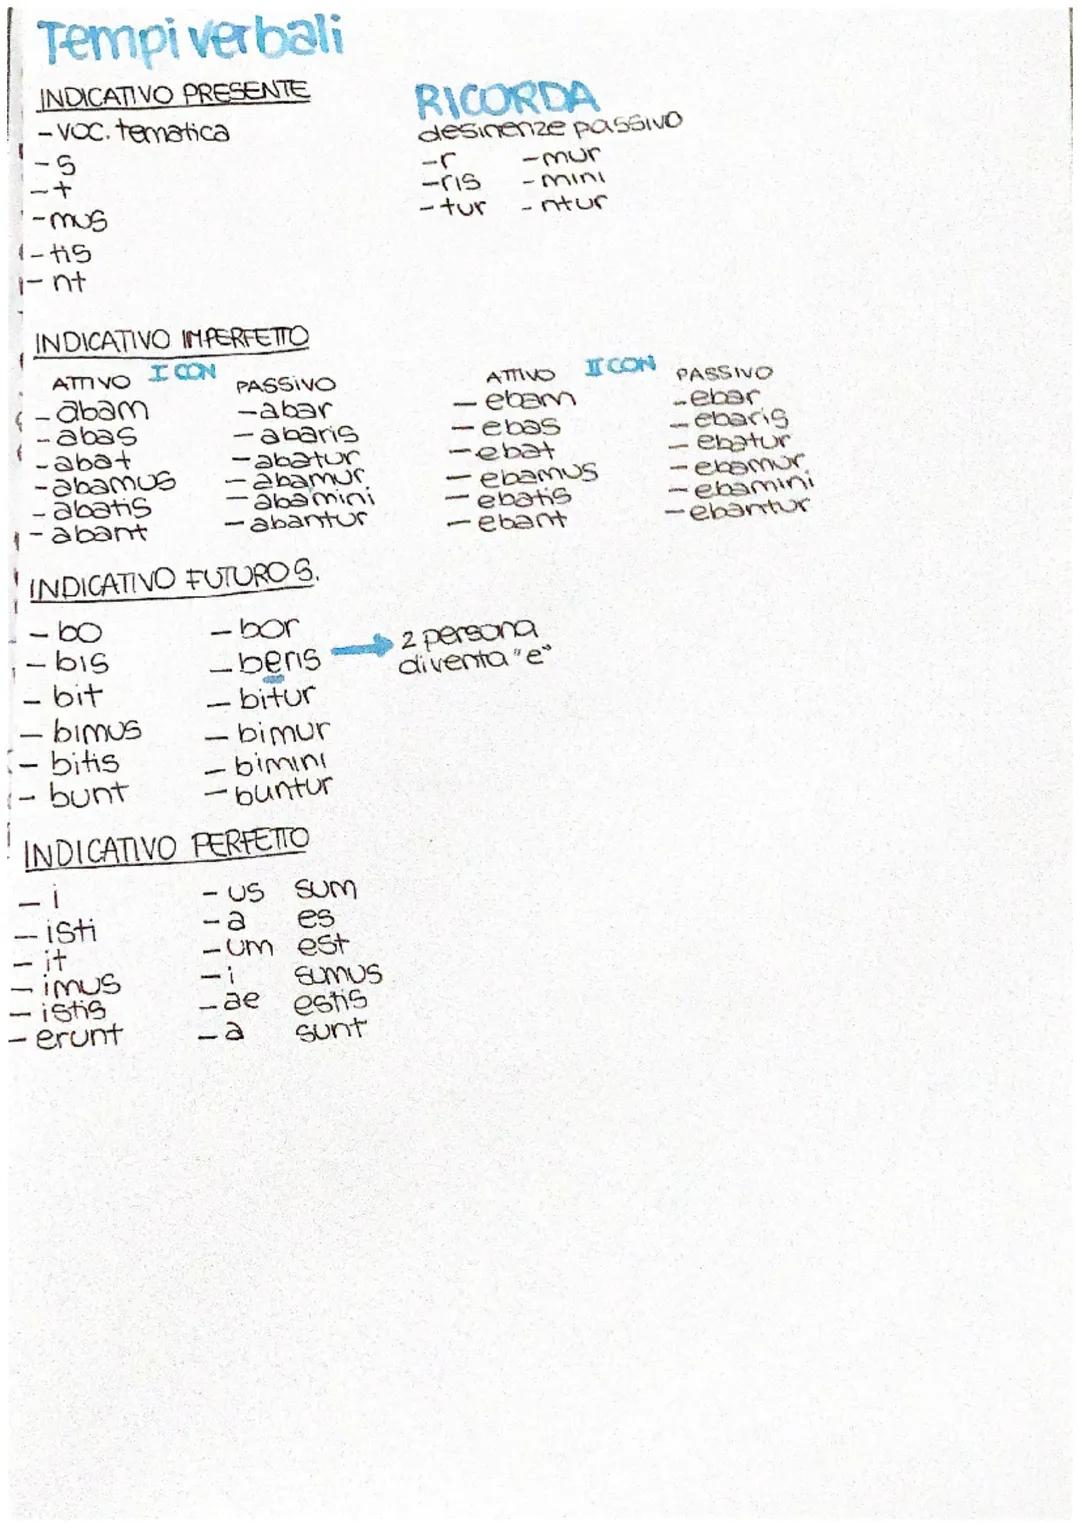 Tempi verbali
INDICATIVO PRESENTE
- voc. tematica
- s
- t
- mus
- tis
- nt
RICORDA
desinenze passivo
- r - mur
- ris - mini
- tur - ntur
INDICATIVO IMPERFETTO
ATTIVO I CON PASSIVO
- abam - abar
- abas - abaris
- abat - abatur
- abamus - abamur
- abatis - abamini
- abant - abantur
ATTIVO II CON PASSIVO
- ebam - ebar
- ebas - ebaris
- ebat - ebatur
- ebamus - ebamur
- ebatis - ebamini
- ebant - ebantur
INDICATIVO FUTURO S.
- bo - bor
- bis - beris → 2 persona
diventa "e"
- bit - bitur
- bimus - bimur
- bitis - bimini
- bunt - buntur
INDICATIVO PERFETTO
- i - us sum
- isti - a es
- it - um est
- imus - i sumus
- istis - ae estis
- erunt - a sunt